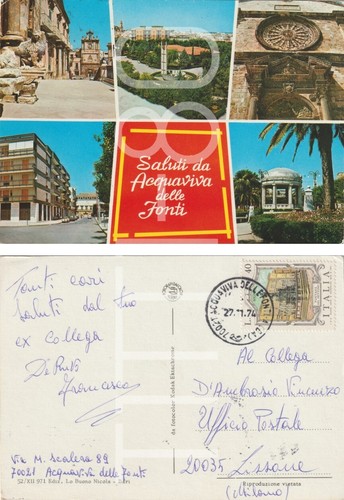 Saluti da
Acquaviva
delle
Fonti
Tanti cari
saluti dal tuo
ex collega
Francesco
Via M. Scalera 89
70021 Acquaviva delle Fonti
52/XII 971 Ediz. La Buona Nicola - Bari
da fotocolor Kodak Ektachrome
70021 ACQUAVIVA DELLE FONTI (BA)
27.11.74
L. 40
ITALIA
Al Collega
D'Ambrosio Vincenzo
Ufficio Postale
20035 Lissone
(Milano)
Riproduzione vietata